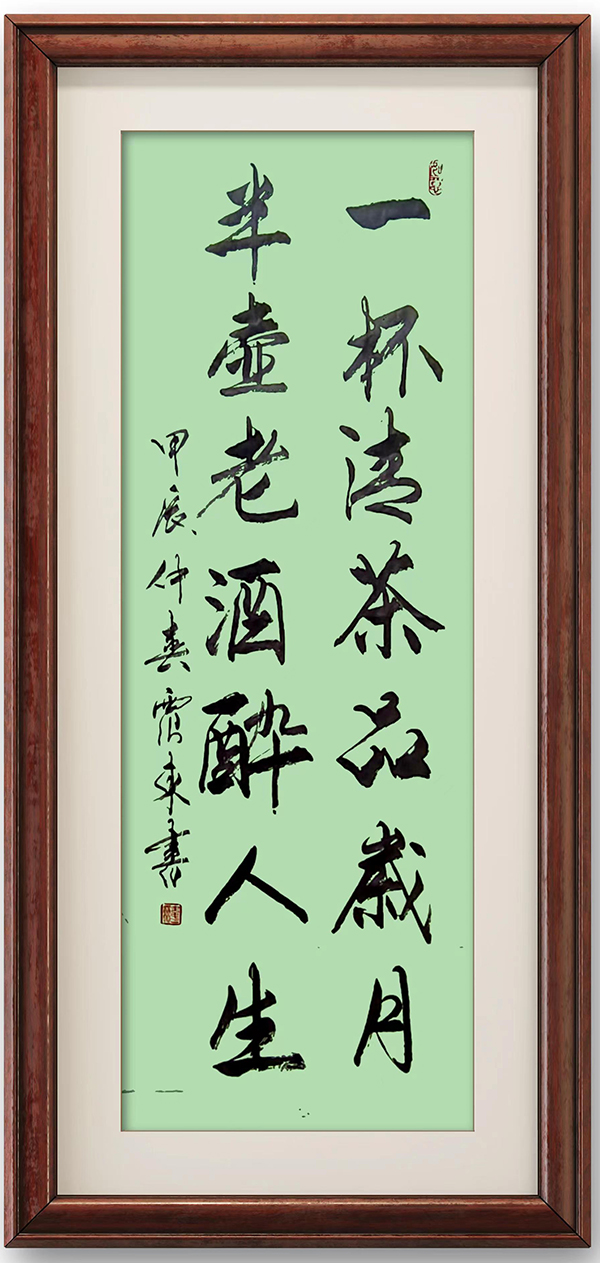 一杯清茶品歲月
半壺老酒醉人生
甲辰仲春霄東書